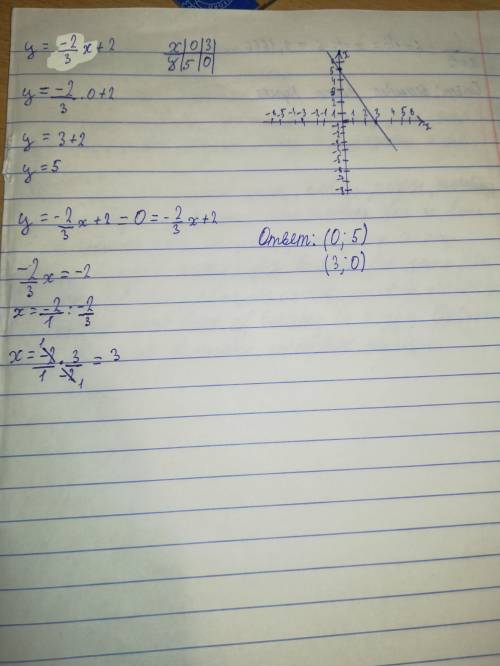 y = -2/3 x + 2
x | 0 | 3
y | 5 | 0
y = -2/3 · 0 + 2
y = 3 + 2
y = 5
y = -2/3 x + 2 = 0 = -2/3 x + 2
-2/3 x = -2
x = -2/1 : -2/3
x = -2/1 · 3/-2 = 3
Ответ: (0; 5)
(3; 0)